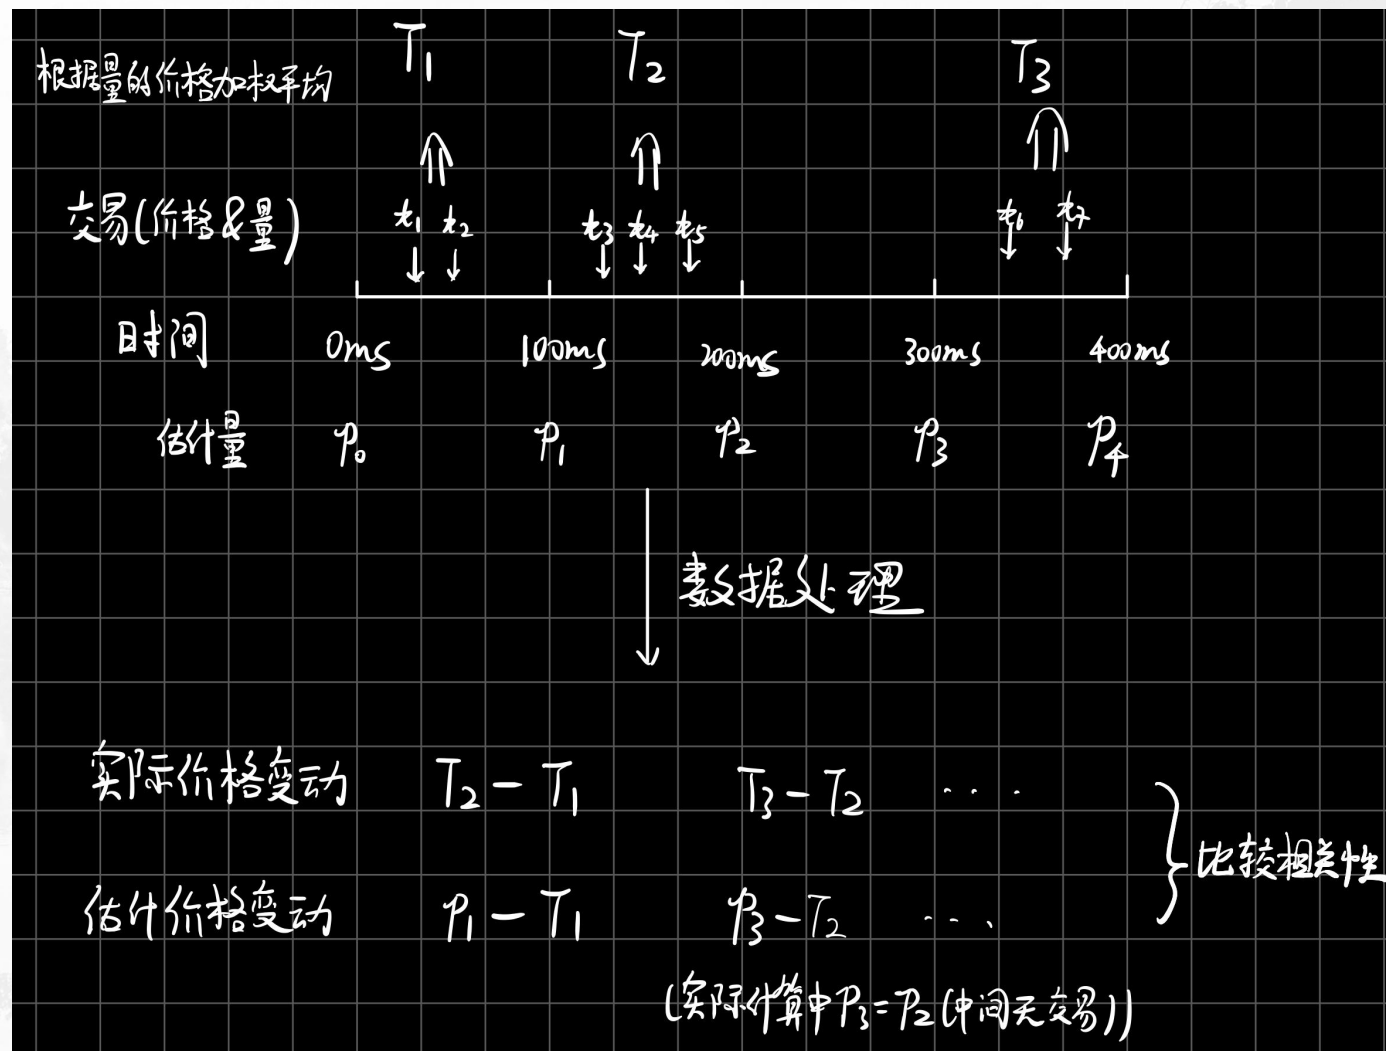 根据量的价格加权平均 T₁ T₂ T₃
交易(价格&量) t₁ t₂ t₃ t₄ t₅ t₆ t₇
时间 0ms 100ms 200ms 300ms 400ms
估计量 P₀ P₁ P₂ P₃ P₄
数据处理
实际价格变动 T₂-T₁ T₃-T₂ ....
估计价格变动 P₁-T₁ P₃-T₂ ....
比较相关性
(实际计算中P₃=P₂(中间无交易))